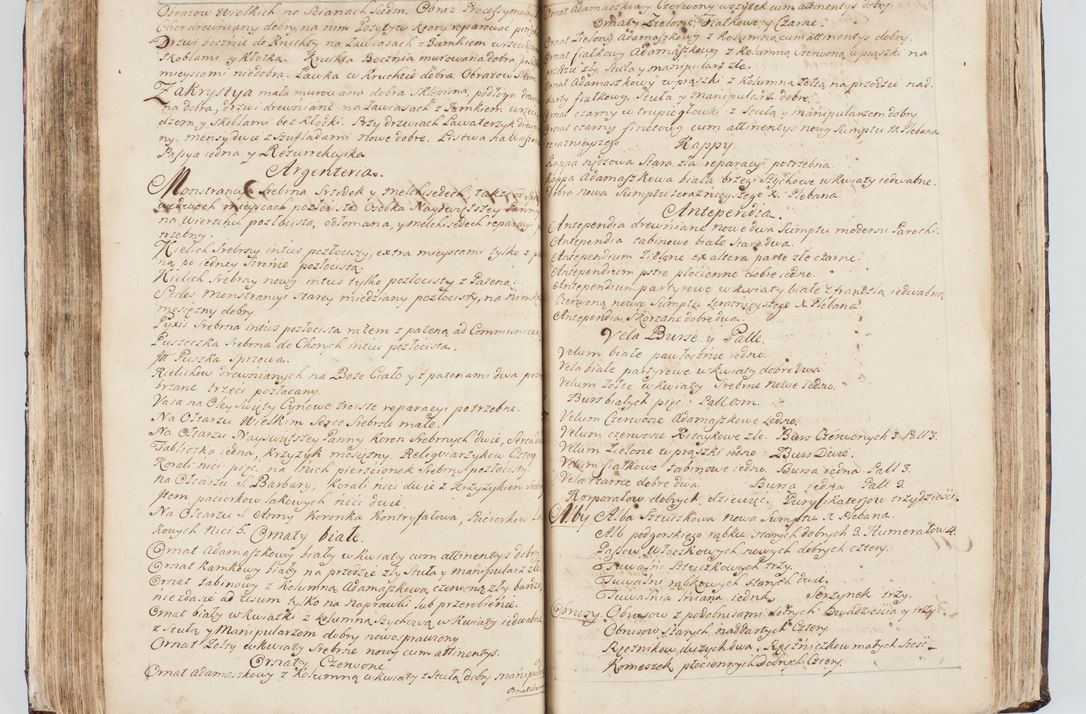 Obrazow Wielkich na Scianach Siedm. Obraz Processyonalny
Chor drewniany dobry, na nim Pozytyw ktory reparować
Drzwi boczne do Kruchty na Zawiasach z Zamkiem wrzecią
Skoblami y Klotka. Kruchta Boczna murowana dobra, podłoga
mieyscami niedobra. Ławka w Kruchcie dobra Obrazow
Zakrystya mała murowana dobra Sklepiona, podłoga
na dobra, drzwi drewniane na Zawiasach z Zamkiem wrzecią
dzem y Skoblami bez Klotki. Przy drzwiach Lawaterzyk
ny, mensy dwie z Szufladami nowe dobre.
Passya iedna y Rezurrekcyika
Argenteria.
Monstrancya Srebrna Srzodek y melchisedech, także
w dwoch mieyscach pozłocista Osobka Naydwyższey Panny
na Wierzchu pozłocista, odłomana, y melchisedech reparacyi
trzebny.
Kielich Srebrny intus pozłocisty, extra mieyscami tylko z
ną po iedney stronie pozłocistą.
Kielich Srebrny nowy intus tylko pozłocisty z Pateną.
Pedes, monstrancyi Starey miedziany pozłocisty, na nim
mosiężny dobry
Pyxis Srebrna intus pozłocista ratem z pateną ad Communican
Puszeczka Srebrna do Chorych intus pozłocista.
Puszka Spizowa.
Kielichow drewnianych na Boże Ciało y z patenami dwa
brzane trzeci pozłacany.
Vasa na Oley Swięty Cynowe troiste reparacyi potrzebne.
Na Ołtarzu Wielkim Serce Srebrne małe.
Na Ołtarzu Naywyższey Panny Koron Srebrnych dwie,
Tabliczka iedna, Krzyżyk mosiężny, Reliquiarzykow
Korali nici pięć, na tnich pierścionek Srebrny pozłocisty
na Ołtarzu S. Barbary, Korali nici dwie z Krzyżykiem
ftem paciorkow lakowych nici dwie
Na Ołtarzu S. Anny Koronka Kontryfałowa, Paciorkow
kowych Nici 5. Ornaty białe.
Ornat Adamaszkowy biały w kwiaty cum attinentys dobry
Ornat kamkowy biały na przodzie zły Stuła y manipularz złe
Ornat tabinowy z Kolumną Adamaszkową czerwoną zły bardzo,
nie zda sie ad usum tylko na naprawki lub przerobienie.
Ornat biały w kwiatki z kolumną Szychową w kwiaty iedwabne
z stułą y Manipularzem dobry nowo prawiony
Ornat Zołty w kwiaty Srebrne nowy cum attinentys.
Ornaty Czerwone
Ornat Adamaszkowy z Kolumną w kwiaty z Stułą dobry
Ornat Adamaszkowy Czerwony wszystek cum attinentys dobry.
Ornaty Zielone, Fiałkowe, y Czarne.
Ornat Zielony Adamaszkowy z Kolumną cum attinentys dobry.
Ornat fiałkowy Adamaszkowy z Kolumną Czerwoną w prążki na
przodzie zły, Stuła y manipularz złe.
Ornat Adamaszkowy w prążki z Kolumną Zołtą na przodzie nad
darty fiałkowy, Stuła y Manipularz dobre.
Ornat czarny w trupie głowki z Stułą y manipularzem dobry.
Ornat czarny finetowy cum attinentys nowy Sumptu IX. Plebana
teraznieyszego
Kappy.
Kappa nędzowa Stara, zła reparacyi potrzebna.
Kappa Adamaszkowa biała brzegi Szychowe w kwiaty iedwabne.
dobra nowa Sumptu teraznieyszego X. Plebana.
Antependia.
Antependia drewniane nowe dwa Sumptu moderni Parochi.
Antependia tabinowe białe Stare dwa.
Antependium Zielone ex altera parte złe czarne.
Antependium pstre płocienne dobre iedno.
Antependium partyrowe w kwiaty białe z frandzlą iedwabną
Czerwoną nową Sumptu teraznieyszego X. Plebana
Antependia Skorzane dobre dwa.
Vela Burse, y Palle.
Velum białe pawłoczne iedno.
Vela białe partyrowe w kwiaty dobre dwa
Velum Zołte w kwiaty Srebrne nowe iedno.
Burs białych pięć. Pall osm.
Velum Czerwone Adamaszkowe iedno.
Velum czerwone Kitaykowe złe. Burs Czerwonych 3. Pall 3.
Velum Zielone w prążki iedno. Burs Dwie.
Velum fiałkowe tabinowe iedno. Bursa iedna Pall 3.
Vela czarne dobre dwa. Bursa iedna Pall 3.
Korporałow dobrych dziewięć. Puryfikaterzow trzydzieści.
Alby Alba Sztuczkowa nowa Sumptu X Plebana.
Alb podgorskiego rąbku starych dobrych 3. Humerałow 4.
Pasow Włoczkowych nowych dobrych cztery.
Tuwalni Sztuczkowych trzy.
Tuwalni rąbkowych starych dwie.
Tuwalnia lniana iedna. Jerzynek trzy.
Obrusy Obrusow z podobrusami dobrych Dwadzieścia y trzy.
Obrusow starych naddartych Cztery.
Ręcznikow dużych dwa, Ręczniczkow małych sześć
Komeszek płociennych dobrych Cztery.